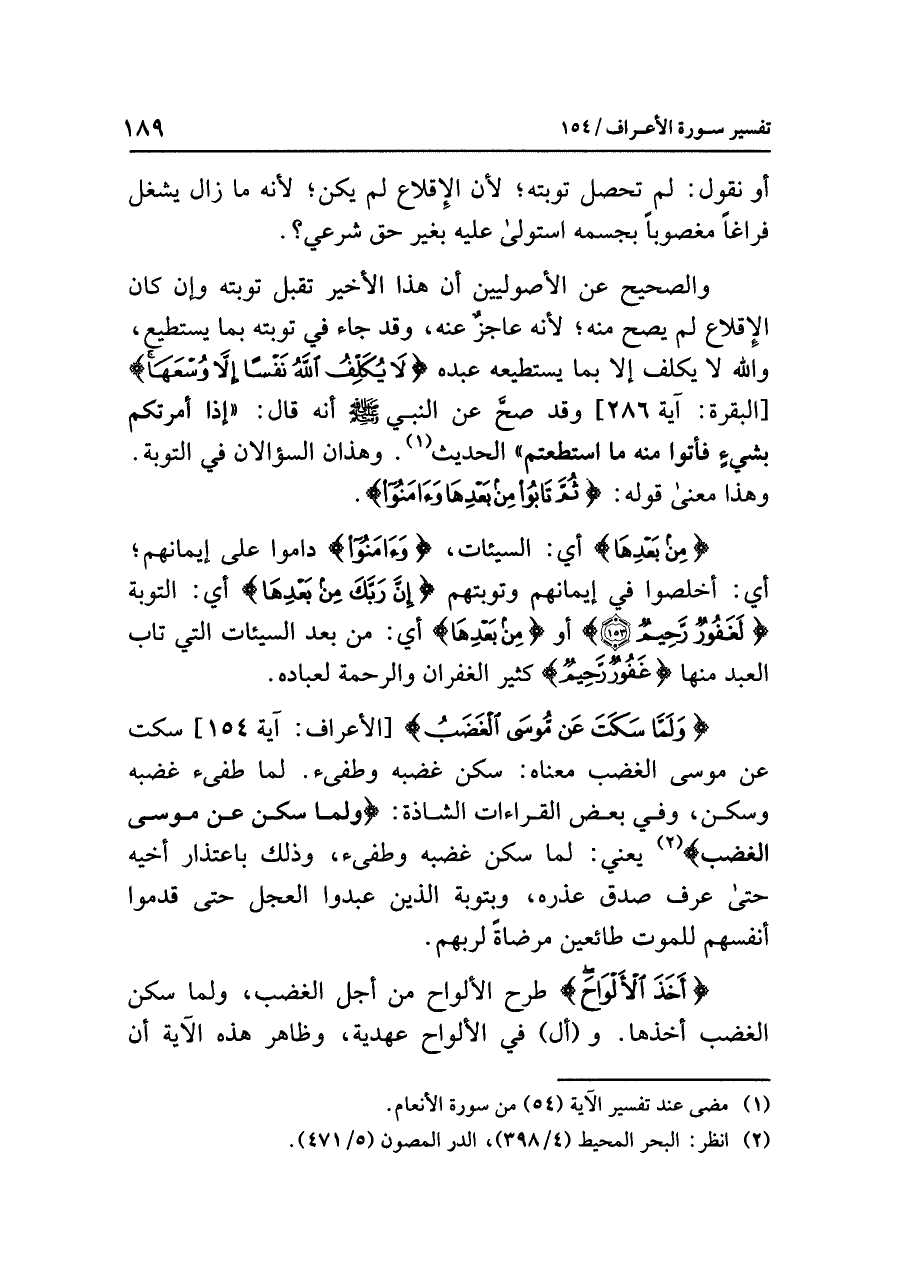 تفسير سـورة الأعـراف/ ١٥٤
١٨٩
أو نقول: لم تحصل توبته؛ لأن الإِقلاع لم يكن؛ لأنه ما زال يشغل
فراغاً مغصوباً بجسمه استولىٰ عليه بغير حق شرعي؟.
والصحيح عن الأصوليين أن هذا الأخير تقبل توبته وإن كان
الإِقلاع لم يصح منه؛ لأنه عاجزٌ عنه، وقد جاء في توبته بما يستطيع،
والله لا يكلف إلا بما يستطيعه عبده ﴿لَا يُكَلِّفُ ٱللَّهُ نَفْسًا إِلَّا وُسْعَهَاۚ﴾
[البقرة: آية ٢٨٦] وقد صحَّ عن النبـي ﷺ أنه قال: «إذا أمرتكم
بشيءٍ فأتوا منه ما استطعتم» الحديث(١). وهذان السؤالان في التوبة.
وهذا معنىٰ قوله: ﴿ثُمَّ تَابُوا۟ مِنۢ بَعْدِهَا وَءَامَنُوٓا۟﴾.
﴿مِنۢ بَعْدِهَا﴾ أي: السيئات، ﴿وَءَامَنُوٓا۟﴾ داموا على إيمانهم؛
أي: أخلصوا في إيمانهم وتوبتهم ﴿إِنَّ رَبَّكَ مِنۢ بَعْدِهَا﴾ أي: التوبة
﴿لَغَفُورٌ رَّحِيمٌ ١٥٣﴾ أو ﴿مِنۢ بَعْدِهَا﴾ أي: من بعد السيئات التي تاب
العبد منها ﴿غَفُورٌ رَّحِيمٌ﴾ كثير الغفران والرحمة لعباده.
﴿وَلَمَّا سَكَتَ عَن مُّوسَى ٱلْغَضَبُ﴾ [الأعراف: آية ١٥٤] سكت
عن موسى الغضب معناه: سكن غضبه وطفىء. لما طفىء غضبه
وسكـن، وفـي بعـض القـراءات الشـاذة: ﴿ولمـا سكـن عـن مـوسـى
الغضب﴾(٢) يعني: لما سكن غضبه وطفىء، وذلك باعتذار أخيه
حتىٰ عرف صدق عذره، وبتوبة الذين عبدوا العجل حتى قدموا
أنفسهم للموت طائعين مرضاةً لربهم.
﴿أَخَذَ ٱلْأَلْوَاحَۖ﴾ طرح الألواح من أجل الغضب، ولما سكن
الغضب أخذها. و (أل) في الألواح عهدية، وظاهر هذه الآية أن
(١) مضى عند تفسير الآية (٥٤) من سورة الأنعام.
(٢) انظر: البحر المحيط (٣٩٨/٤)، الدر المصون (٤٧١/٥).